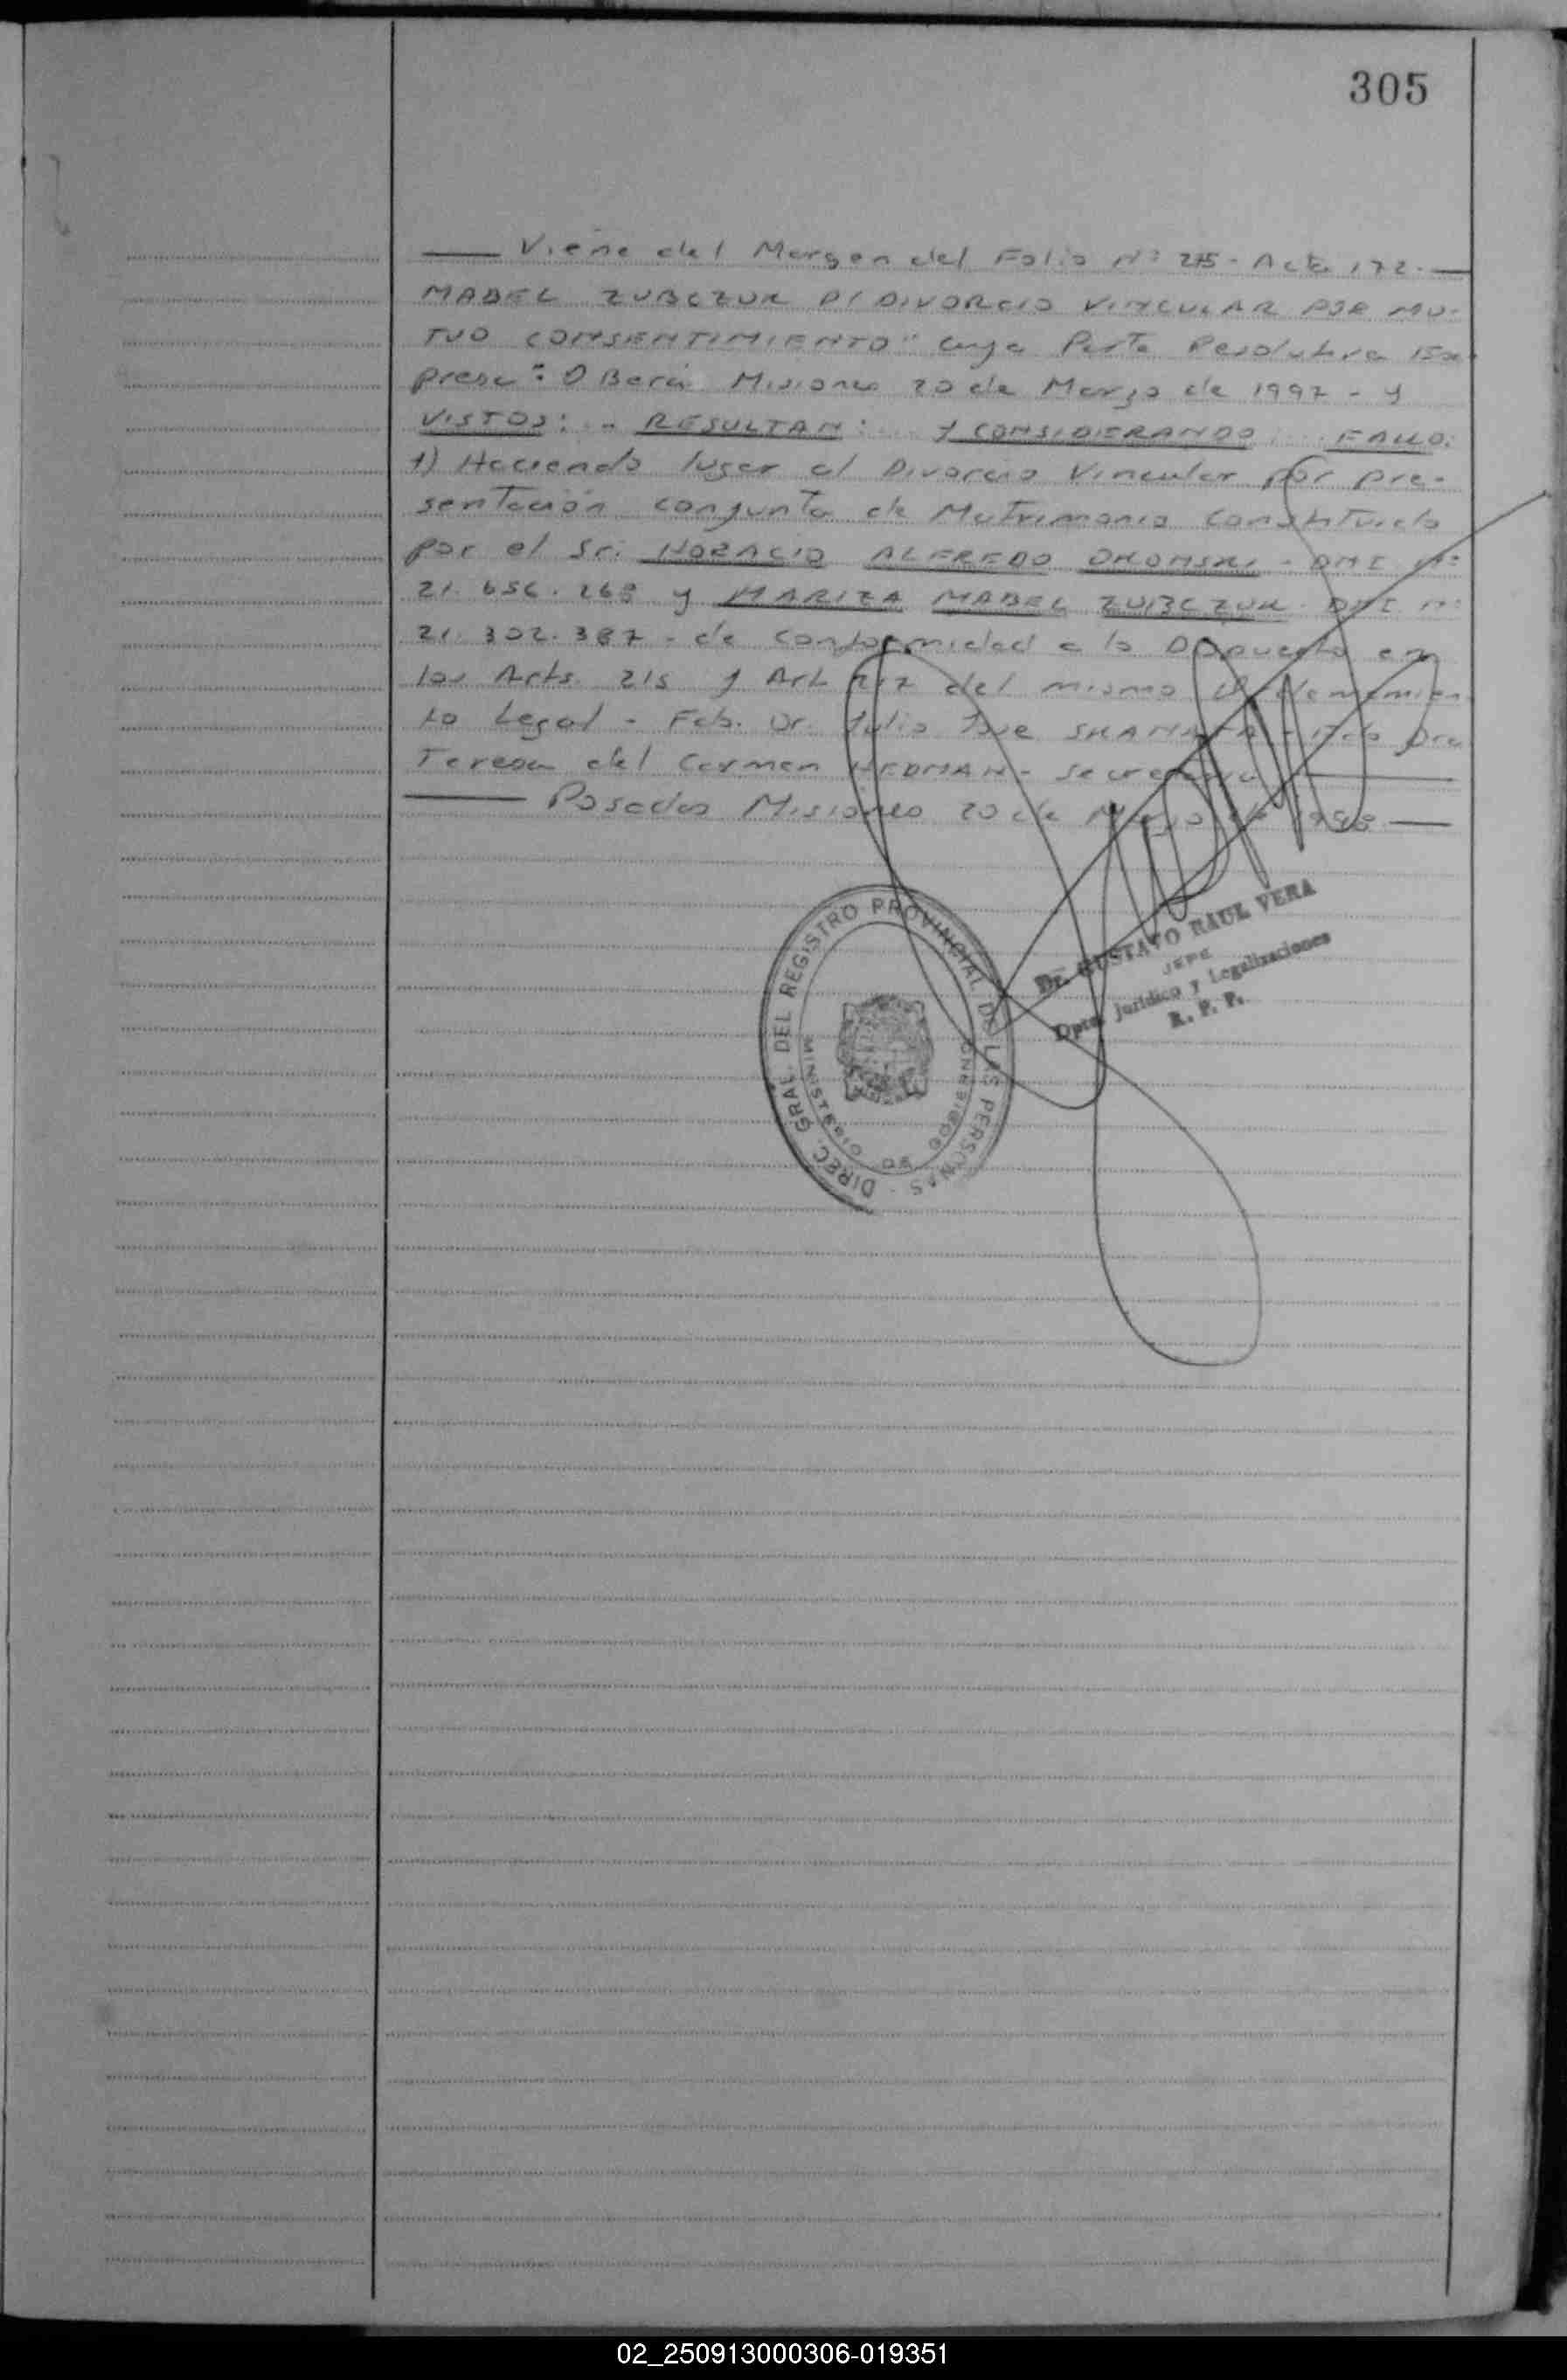 305
Viene del Margen del Folio Nº 275 - Acta 172.
MABEL ZUBCZUK P/ DIVORCIO VINCULAR POR MU-
TUO CONSENTIMIENTO" cuya Parte Resolutiva Ex-
presa: "OBerá Misiones 20 de Marzo de 1997 - y
VISTOS: .. RESULTAN: .. Y CONSIDERANDO ... FALLO:
1) Haciendo lugar al Divorcio Vincular por pre-
sentación conjunta de Matrimonio Constituido
por el Sr. HORACIO ALFREDO - DNI Nº
21.656.268 y MARIZA MABEL ZUBCZUK - DNI nº
21.302.387 - de conformidad a lo Dispuesto en
los Arts. 215 y Art. del mismo
to Legal - Fdo. Dr. Julio Jose - Fdo Dra
Teresa del Carmen HEDMAN - Secretaria
Posadas Misiones 20 de de 1998.
DIREC. GRAL. DEL REGISTRO PROVINCIAL DE LAS PERSONAS
MINISTERIO DE GOBIERNO
Dr. GUSTAVO RAUL VERA
JEFE
Dpto. Jurídico y Legalizaciones
R. P. P.
02_250913000306-019351